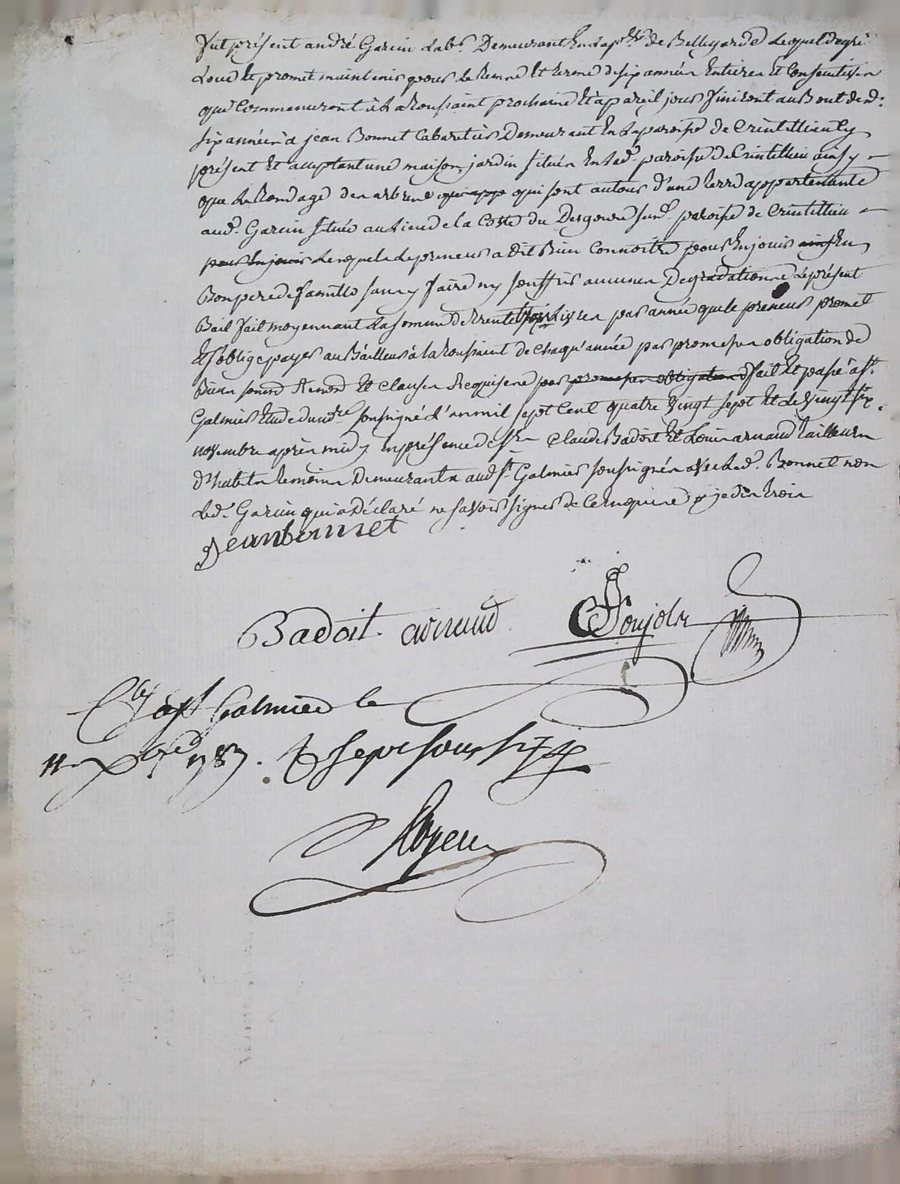 Fut présent andré Garcin lab.r Demeurant En la p.sse de Bellegarde Lequel de gré
Loue et promet maintenir pour le tems et terme de six années Entieres et Consécutives
qui Commenceront à la toussaint prochaine Et à pareil jour finiront au Bout desd.
six années à jean Bonnet Cabaretier Demeurant En la paroisse de Crintillieu Cy
présent Et acceptant une maison, jardin situés En lad. paroisse de Crintillieu ainsy
que le Rondage des arbres qui sont autour d'une terre appartenante
aud. Garcin située au lieu de la Coste du Desgoure sus.d paroisse de Crintillieu
pour En jouir Lesquels le preneur a dit Bien Connoitre pour En jouir En
Bon pere de famille sans y faire ny souffrir aucunes Degradations Le présent
Bail fait moyennant la somme de trente livres par année que le preneur promet
Et s'oblige payer au Bailleur à la toussaint de chaqu'année par promesses obligation de
Biens soumis Renon.s Et clauses Requises par promesses obligation fait Et passé à S.t
Galmier Etude du no.re soussigné l'an mil sept Cent quatre Vingt sept Et le Vingt six
novembre après midy En présence de s.rs Claude Badoit Et Louis arnaud tailleurs
d'habits temoins Demeurants aud. S.t Galmier soussignés avec led. Bonnet non
Led. Garcin qui a déclaré ne savoir signer de Ce requis
Jean bonnet
Badoit arnaud
C.lé à S.t Galmier le
1787. R sept sous six